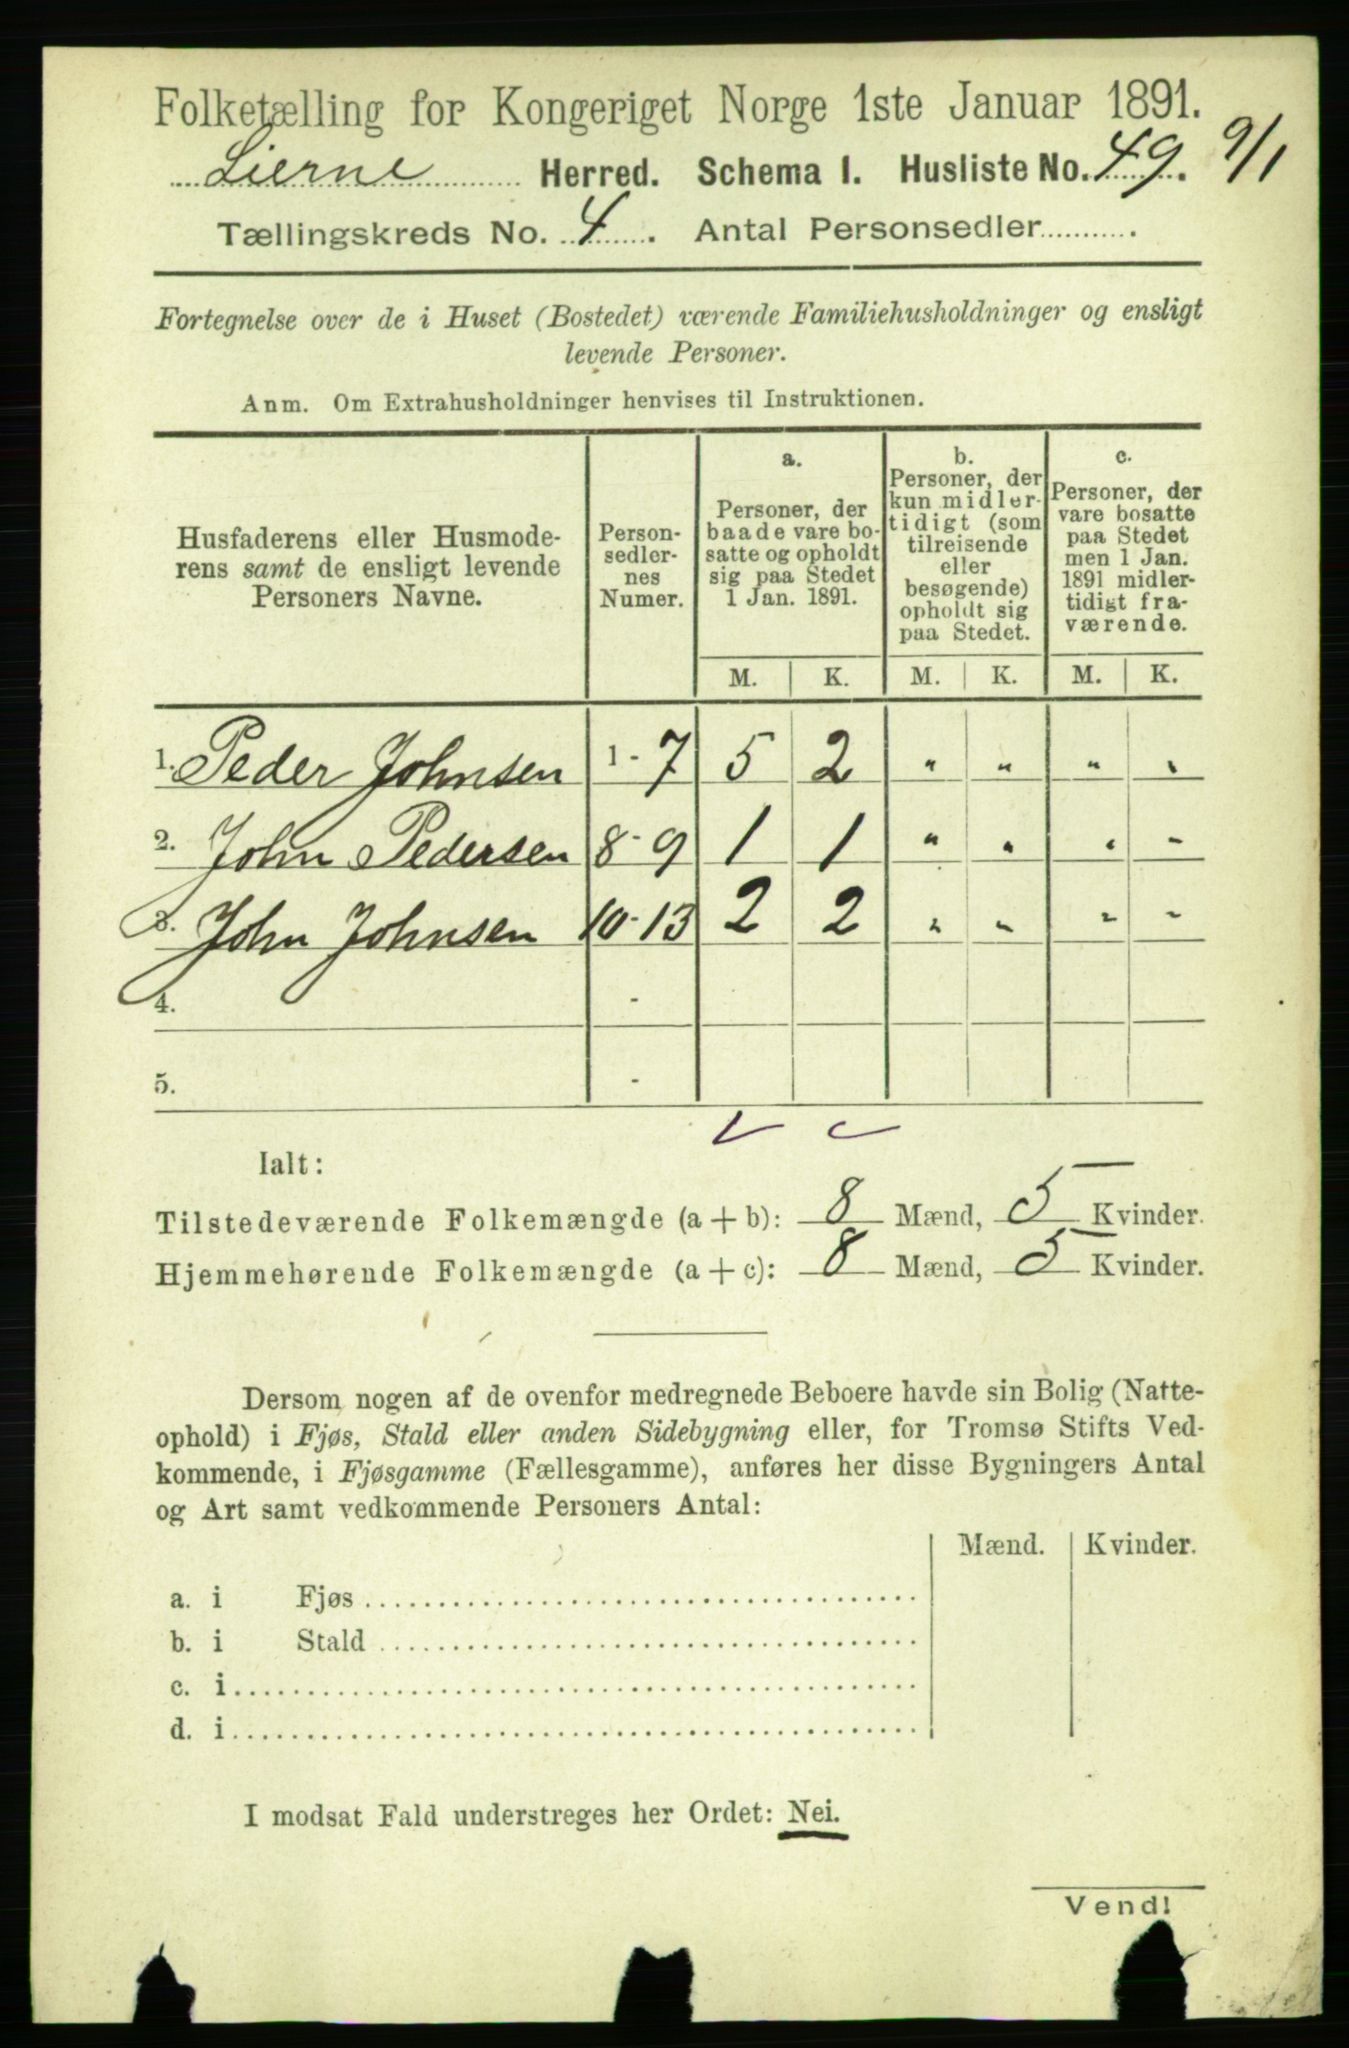 Folketælling for Kongeriget Norge 1ste Januar 1891.
Lierne Herred. Schema I. Husliste No. 49. 9/1
Tællingskreds No. 4. Antal Personsedler .
Fortegnelse over de i Huset (Bostedet) værende Familiehusholdninger og ensligt
levende Personer.
Anm. Om Extrahusholdninger henvises til Instruktionen.
Husfaderens eller Husmode-
rens samt de ensligt levende
Personers Navne.
Person-
sedler-
nes
Numer.
a.
Personer, der
baade vare bo-
satte og opholdt
sig paa Stedet
1 Jan. 1891.
b.
Personer, der
kun midler-
tidigt (som
tilreisende
eller
besøgende)
opholdt sig
paa Stedet.
c.
Personer, der
vare bosatte
paa Stedet
men 1 Jan.
1891 midler-
tidigt fra-
værende.
M. K. M. K. M. K.
1. Peder Johnsen 1 - 7 5 2 " " " "
2. John Pedersen 8 - 9 1 1 " " " "
3. John Johnsen 10 - 13 2 2 " " " "
4. -
5. -
Ialt:
Tilstedeværende Folkemængde (a + b): 8 Mænd, 5 Kvinder.
Hjemmehørende Folkemængde (a + c): 8 Mænd, 5 Kvinder.
Dersom nogen af de ovenfor medregnede Beboere havde sin Bolig (Natte-
ophold) i Fjøs, Stald eller anden Sidebygning eller, for Tromsø Stifts Ved-
kommende, i Fjøsgamme (Fællesgamme), anføres her disse Bygningers Antal
og Art samt vedkommende Personers Antal:
Mænd. Kvinder.
a. i Fjøs
b. i Stald
c. i
d. i
I modsat Fald understreges her Ordet: Nei.
Vend!